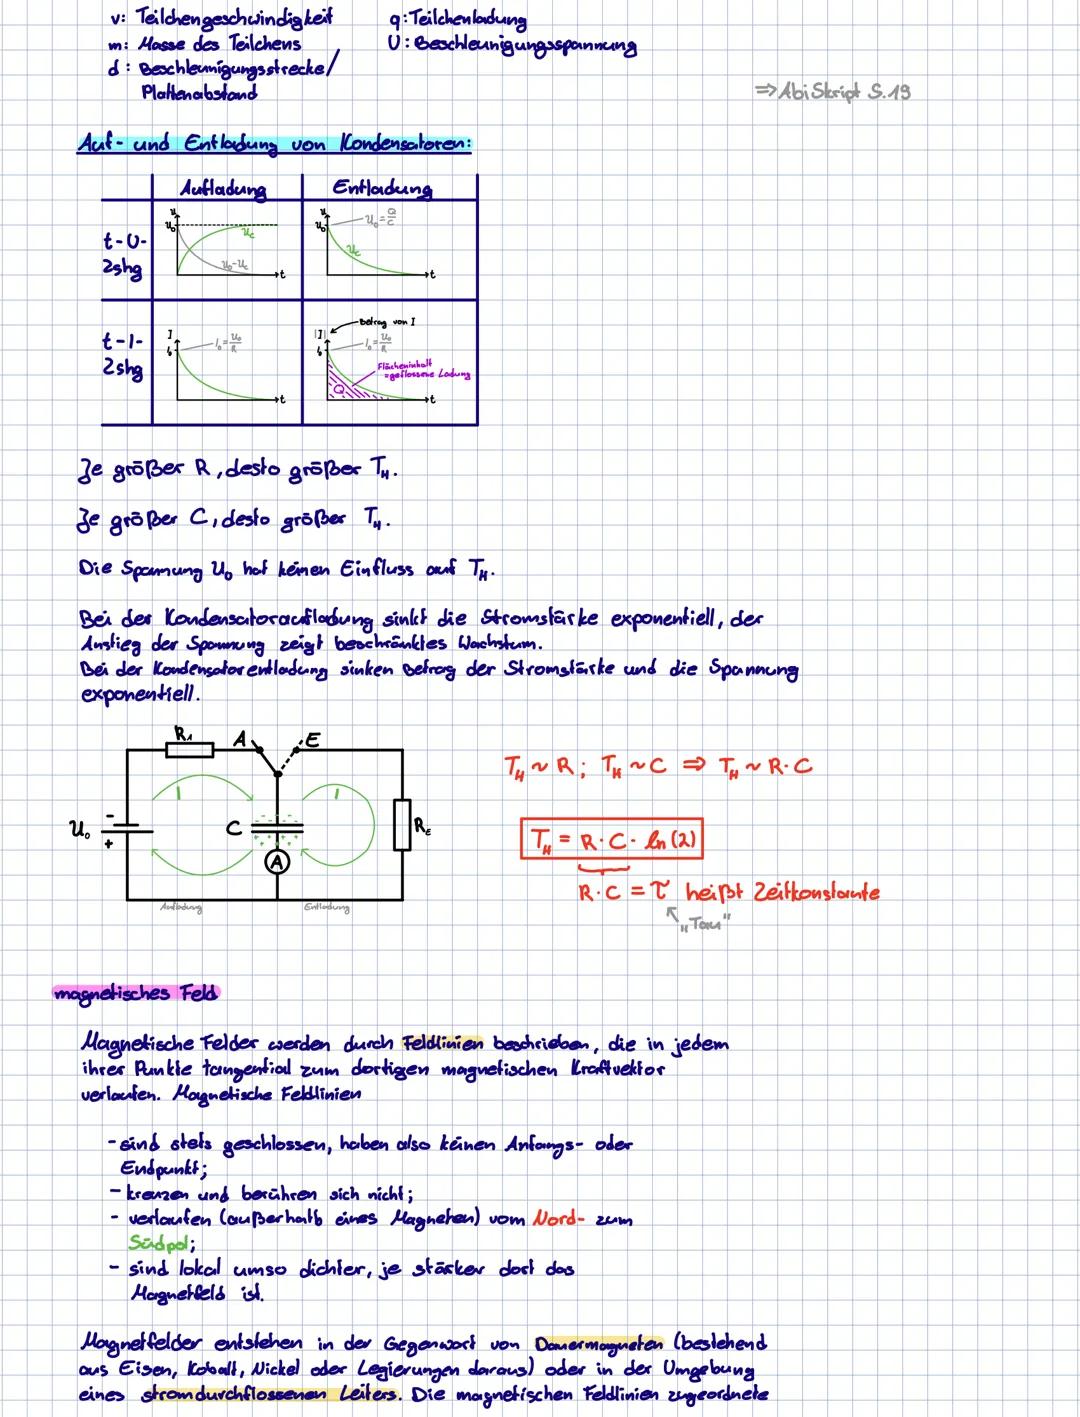 v: Teilchengeschwindigkeit
m: Masse des Teilchens
d: Beschleunigungsstrecke/
Plattenabstand
q: Teilchenladung
U: Beschleunigungsspannung
⇒ AbiSkript S.19
Auf- und Entladung von Kondensatoren:
Aufladung
Entladung
t-U-
Zshg
u
u₀
u_c
u₀-u_c
t
u
u₀
u₀ = Q/C
u_c
t
t-I-
Zshg
I
I₀
I₀ = u₀/R
t
Betrag von I
|I|
I₀
I₀ = u₀/R
Flächeninhalt
=geflossene Ladung
Q
t
Je größer R, desto größer T_H.
Je größer C, desto größer T_H.
Die Spannung U₀ hat keinen Einfluss auf T_H.
Bei der Kondensatoraufladung sinkt die Stromstärke exponentiell, der
Anstieg der Spannung zeigt beschränktes Wachstum.
Bei der Kondensatorentladung sinken Betrag der Stromstärke und die Spannung
exponentiell.
R₁
A
E
I
I
U₀
-
+
C
A
R_E
Aufladung
Entladung
T_H ~ R; T_H ~ C ⇒ T_H ~ R·C
T_H = R·C·ln(2)
R·C = τ heißt Zeitkonstante
„Tau"
magnetisches Feld
Magnetische Felder werden durch Feldlinien beschrieben, die in jedem
ihrer Punkte tangential zum dortigen magnetischen Kraftvektor
verlaufen. Magnetische Feldlinien
- sind stets geschlossen, haben also keinen Anfangs- oder
Endpunkt;
- kreuzen und berühren sich nicht;
- verlaufen (außerhalb eines Magneten) vom Nord- zum
Südpol;
- sind lokal umso dichter, je stärker dort das
Magnetfeld ist.
Magnetfelder entstehen in der Gegenwart von Dauermagneten (bestehend
aus Eisen, Kobalt, Nickel oder Legierungen daraus) oder in der Umgebung
eines stromdurchflossenen Leiters. Die magnetischen Feldlinien zugeordnete